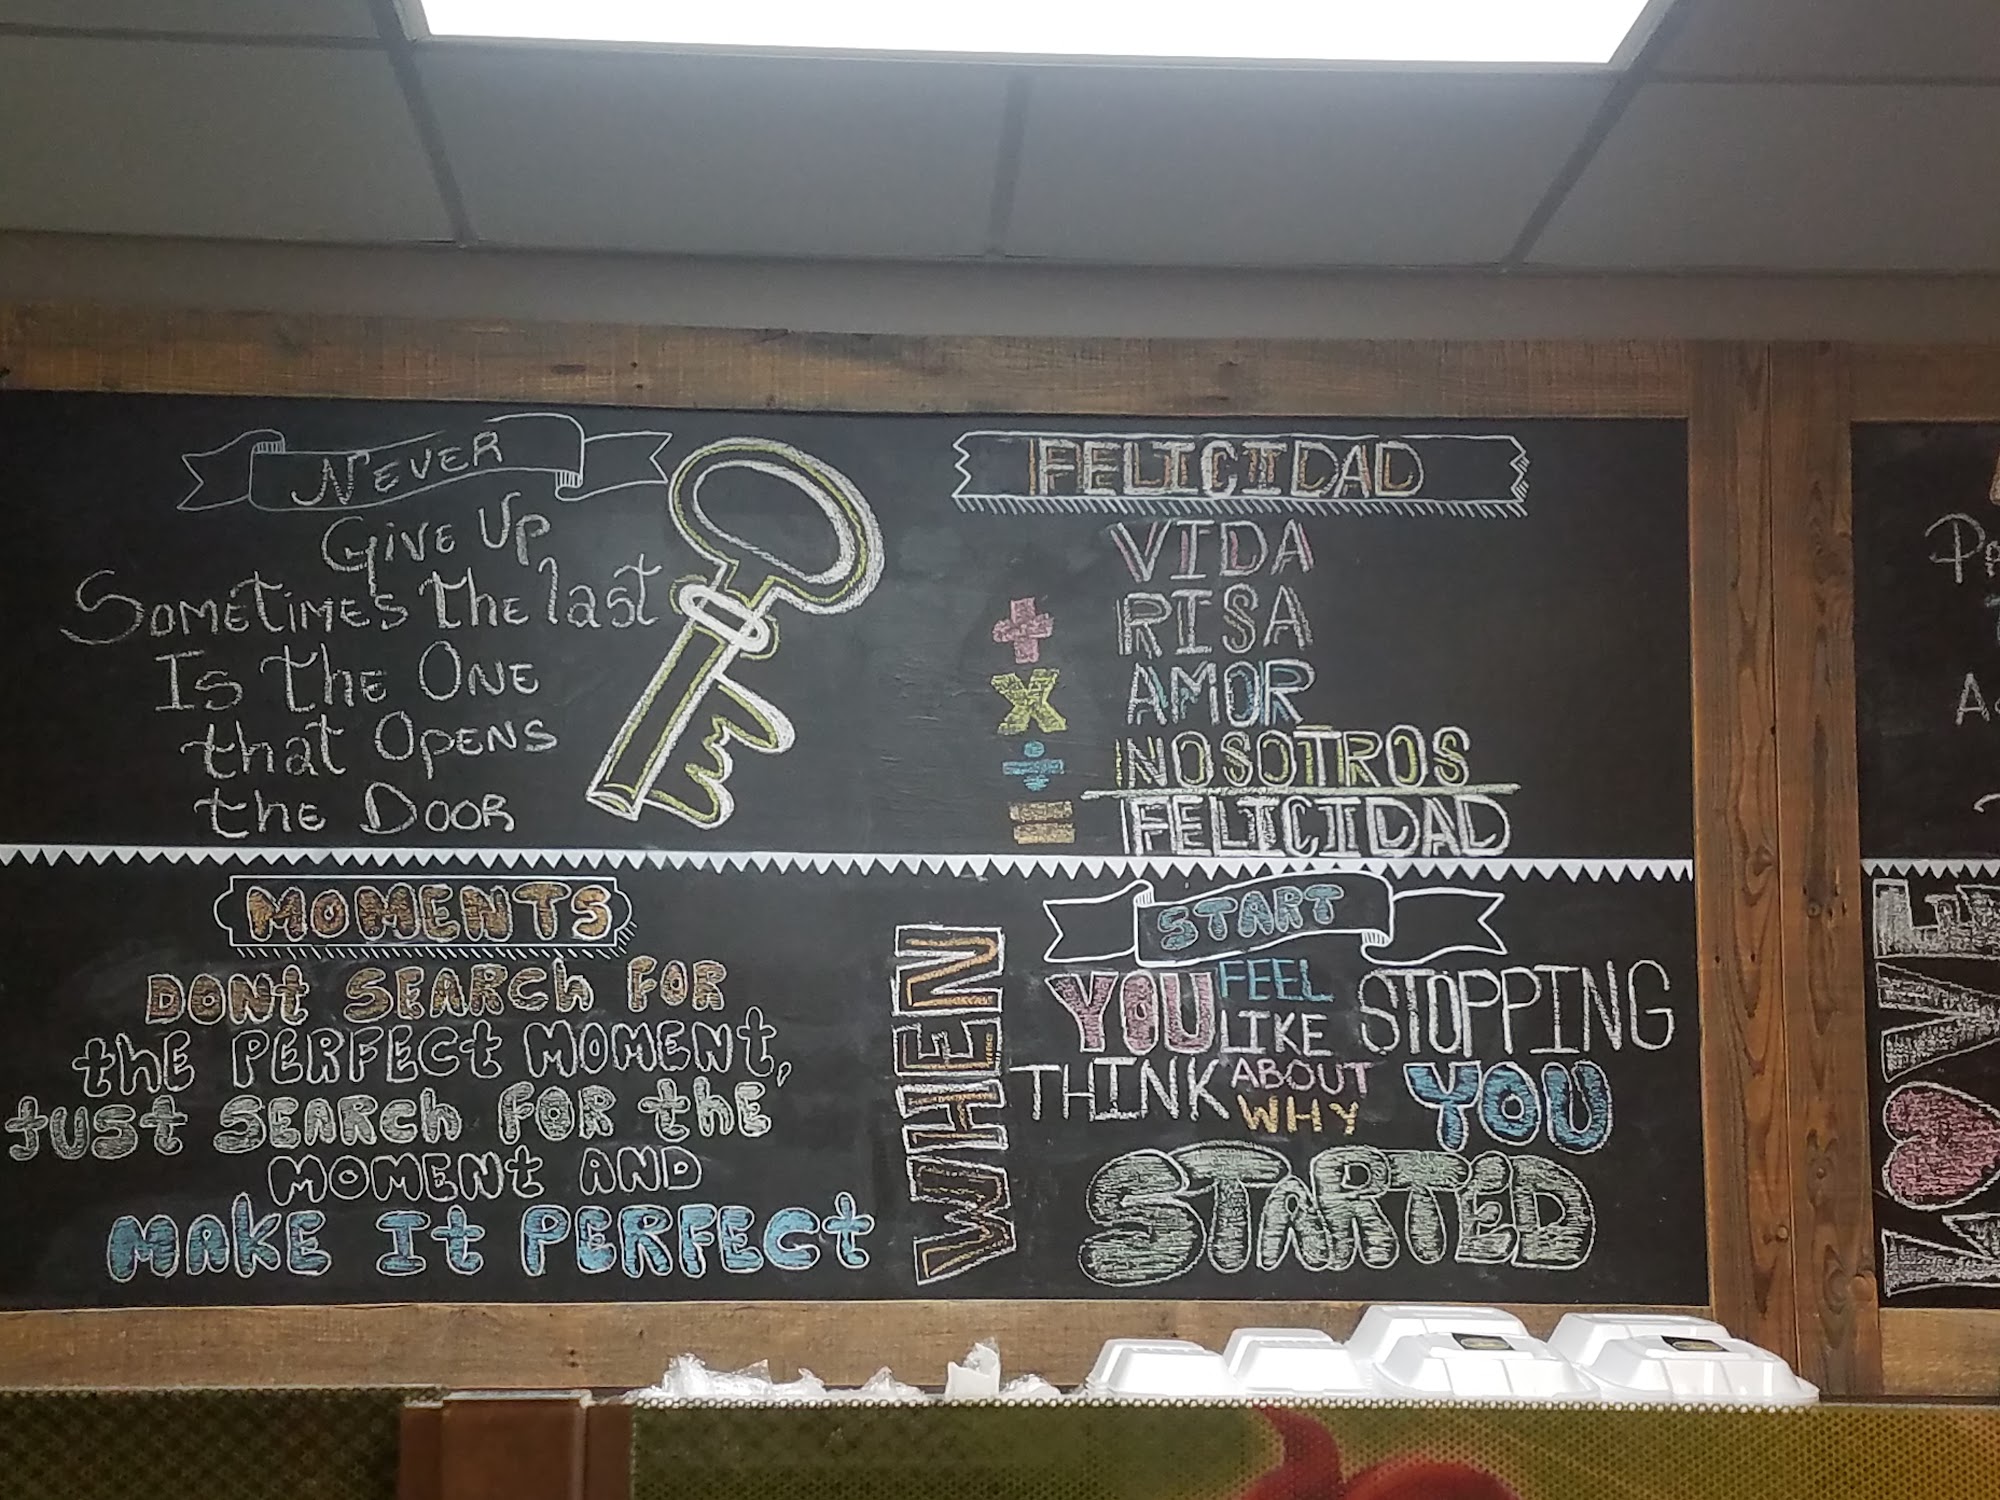 NEVER
GIVE UP
SOMETIMES THE last
IS THE ONE
that OPENS
the DOOR
FELICIDAD
VIDA
+ RISA
x AMOR
÷ NOSOTROS
= FELICIDAD
MOMENTS
DONt SEARCh FOR
thE PERFECt MOMENt,
JUSt SEARCh FOR thE
MOMENt AND
MAkE It PERFECt
START
WHEN
YOU FEEL LIKE STOPPING
THINK ABOUT WHY YOU
STARTED